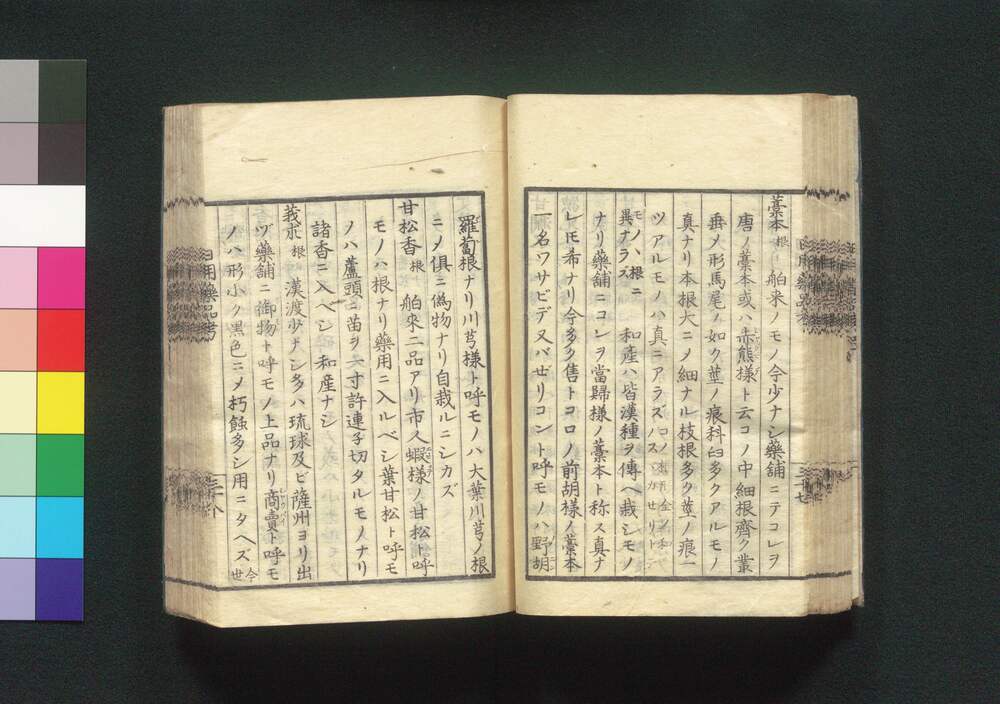 藁本根 舶来ノモノ今少ナシ藥舗ニテコレヲ
唐ノ藁本或ハ赤熊様ト云コノ中細根齊ク叢
垂〆形馬尾ノ如ク莖ノ痕科臼多クアルモノ
真ナリ本根大ニ〆細ナル枝根多ク莖ノ痕一
ツアルモノハ真ニアラズコノ
モノハ根ニ異ナラズ 和産ハ皆漢種ヲ傳ヘ栽シモノ
ナリ藥舗ニコレヲ當歸様ノ藁本ト称ス真ナ
レ𪜈希ナリ今多ク售トコロノ前胡様ノ藁本
一名ワサビデ又バゼリコント呼モノハ野胡
羅蔔根ナリ川芎様ト呼モノハ大葉川芎ノ根
ニ〆俱ニ僞物ナリ自栽ルニシカズ
甘松香根 舶來二品アリ市人蝦様ノ甘松ト呼
モノハ根ナリ藥用ニ入ルベシ葉甘松ト呼モ
ノハ蘆頭ニ苗ヲ一寸許連子切タルモノナリ
諸香ニ入ベシ 和産ナシ
莪朮根 漢渡少ナシ多ハ琉球及ビ薩州ヨリ出
ヅ藥舗ニ御物ト呼モノ上品ナリ商賣ト呼モ
ノハ形小ク黒色ニ〆朽蝕多シ用ニタヘズ今世
日用藥品考
三十七